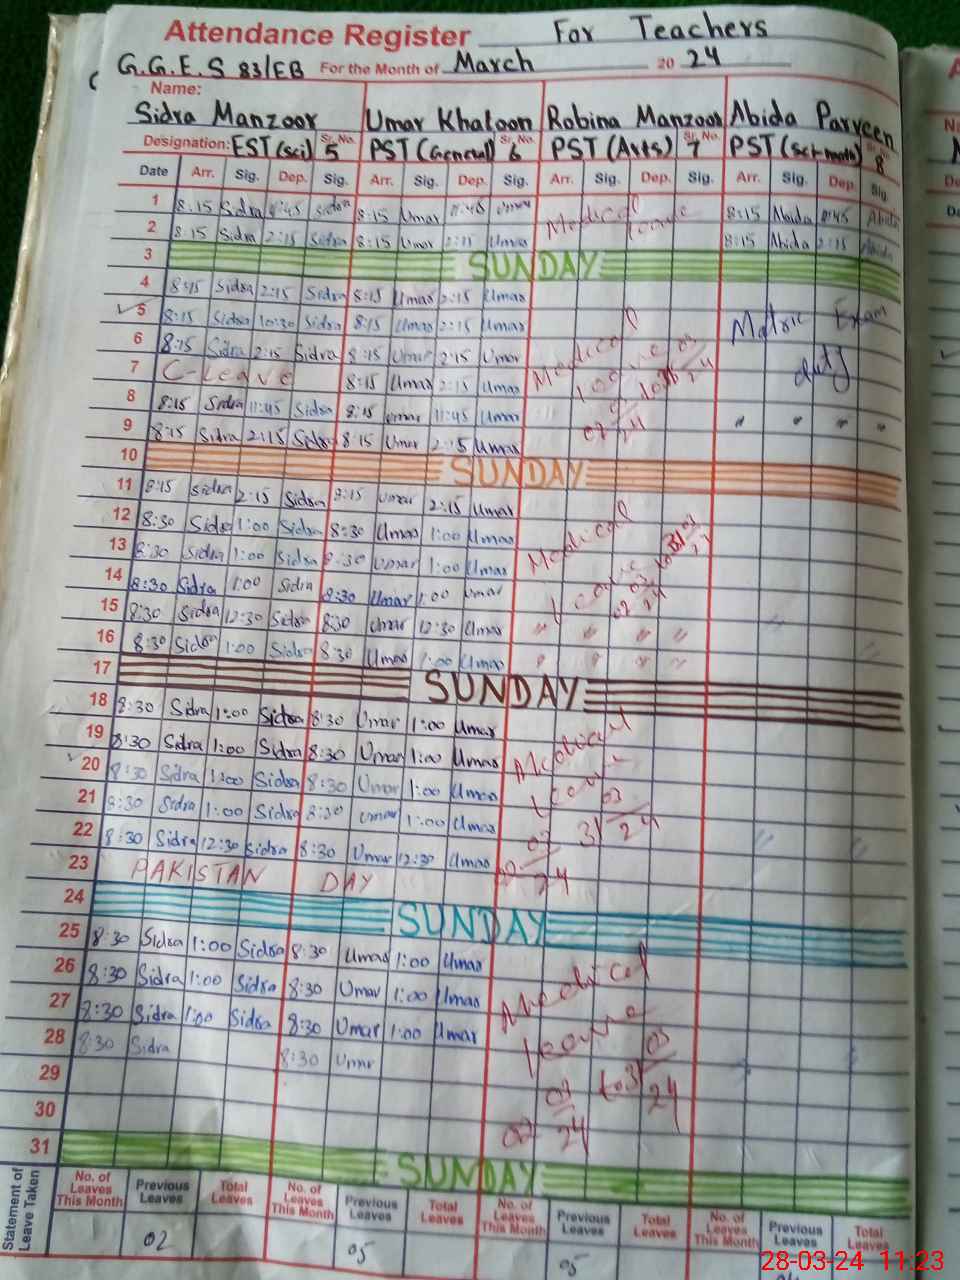 Attendance Register For Teachers
G.G.E.S 83/EB For the Month of March 20 24
Name:
Sidra Manzoor Umar Khatoon Robina Manzoor Abida Parveen
Designation: EST (sci) Sr. No. 5 PST (General) Sr. No. 6 PST (Arts) Sr. No. 7 PST (sci-math) Sr. No. 8
Date Arr. Sig. Dep. Sig. Arr. Sig. Dep. Sig. Arr. Sig. Dep. Sig. Arr. Sig. Dep. Sig.
1 8:15 Sidra 11:45 Sidra 8:15 Umar 11:45 Umar Medical leave 8:15 Abida 11:45 Abida
2 8:15 Sidra 2:15 Sidra 8:15 Umar 2:15 Umar 8:15 Abida 2:15 Abida
3 SUNDAY
4 8:15 Sidra 2:15 Sidra 8:15 Umar 2:15 Umar
5 8:15 Sidra 10:30 Sidra 8:15 Umar 2:15 Umar Matric Exam
6 8:15 Sidra 2:15 Sidra 8:15 Umar 2:15 Umar Medical leave duty
7 C-Leave 8:15 Umar 2:15 Umar
8 8:15 Sidra 11:45 Sidra 8:15 Umar 11:45 Umar
9 8:15 Sidra 2:15 Sidra 8:15 Umar 2:15 Umar
10 SUNDAY
11 8:15 Sidra 2:15 Sidra 8:15 Umar 2:15 Umar
12 8:30 Sidra 1:00 Sidra 8:30 Umar 1:00 Umar Medical
13 8:30 Sidra 1:00 Sidra 8:30 Umar 1:00 Umar Leave
14 8:30 Sidra 1:00 Sidra 8:30 Umar 1:00 Umar
15 8:30 Sidra 12:30 Sidra 8:30 Umar 12:30 Umar
16 8:30 Sidra 1:00 Sidra 8:30 Umar 1:00 Umar
17 SUNDAY
18 8:30 Sidra 1:00 Sidra 8:30 Umar 1:00 Umar
19 8:30 Sidra 1:00 Sidra 8:30 Umar 1:00 Umar Medical
20 8:30 Sidra 1:00 Sidra 8:30 Umar 1:00 Umar Leave
21 8:30 Sidra 1:00 Sidra 8:30 Umar 1:00 Umar
22 8:30 Sidra 12:30 Sidra 8:30 Umar 12:30 Umar
23 PAKISTAN DAY
24 SUNDAY
25 8:30 Sidra 1:00 Sidra 8:30 Umar 1:00 Umar
26 8:30 Sidra 1:00 Sidra 8:30 Umar 1:00 Umar Medical
27 8:30 Sidra 1:00 Sidra 8:30 Umar 1:00 Umar leave
28 8:30 Sidra 8:30 Umar
29
30
31 SUNDAY
Statement of Leave Taken
No. of Leaves This Month Previous Leaves Total Leaves No. of Leaves This Month Previous Leaves Total Leaves No. of Leaves This Month Previous Leaves Total Leaves No. of Leaves This Month Previous Leaves Total Leaves
02 05 05
28-03-24 11:23